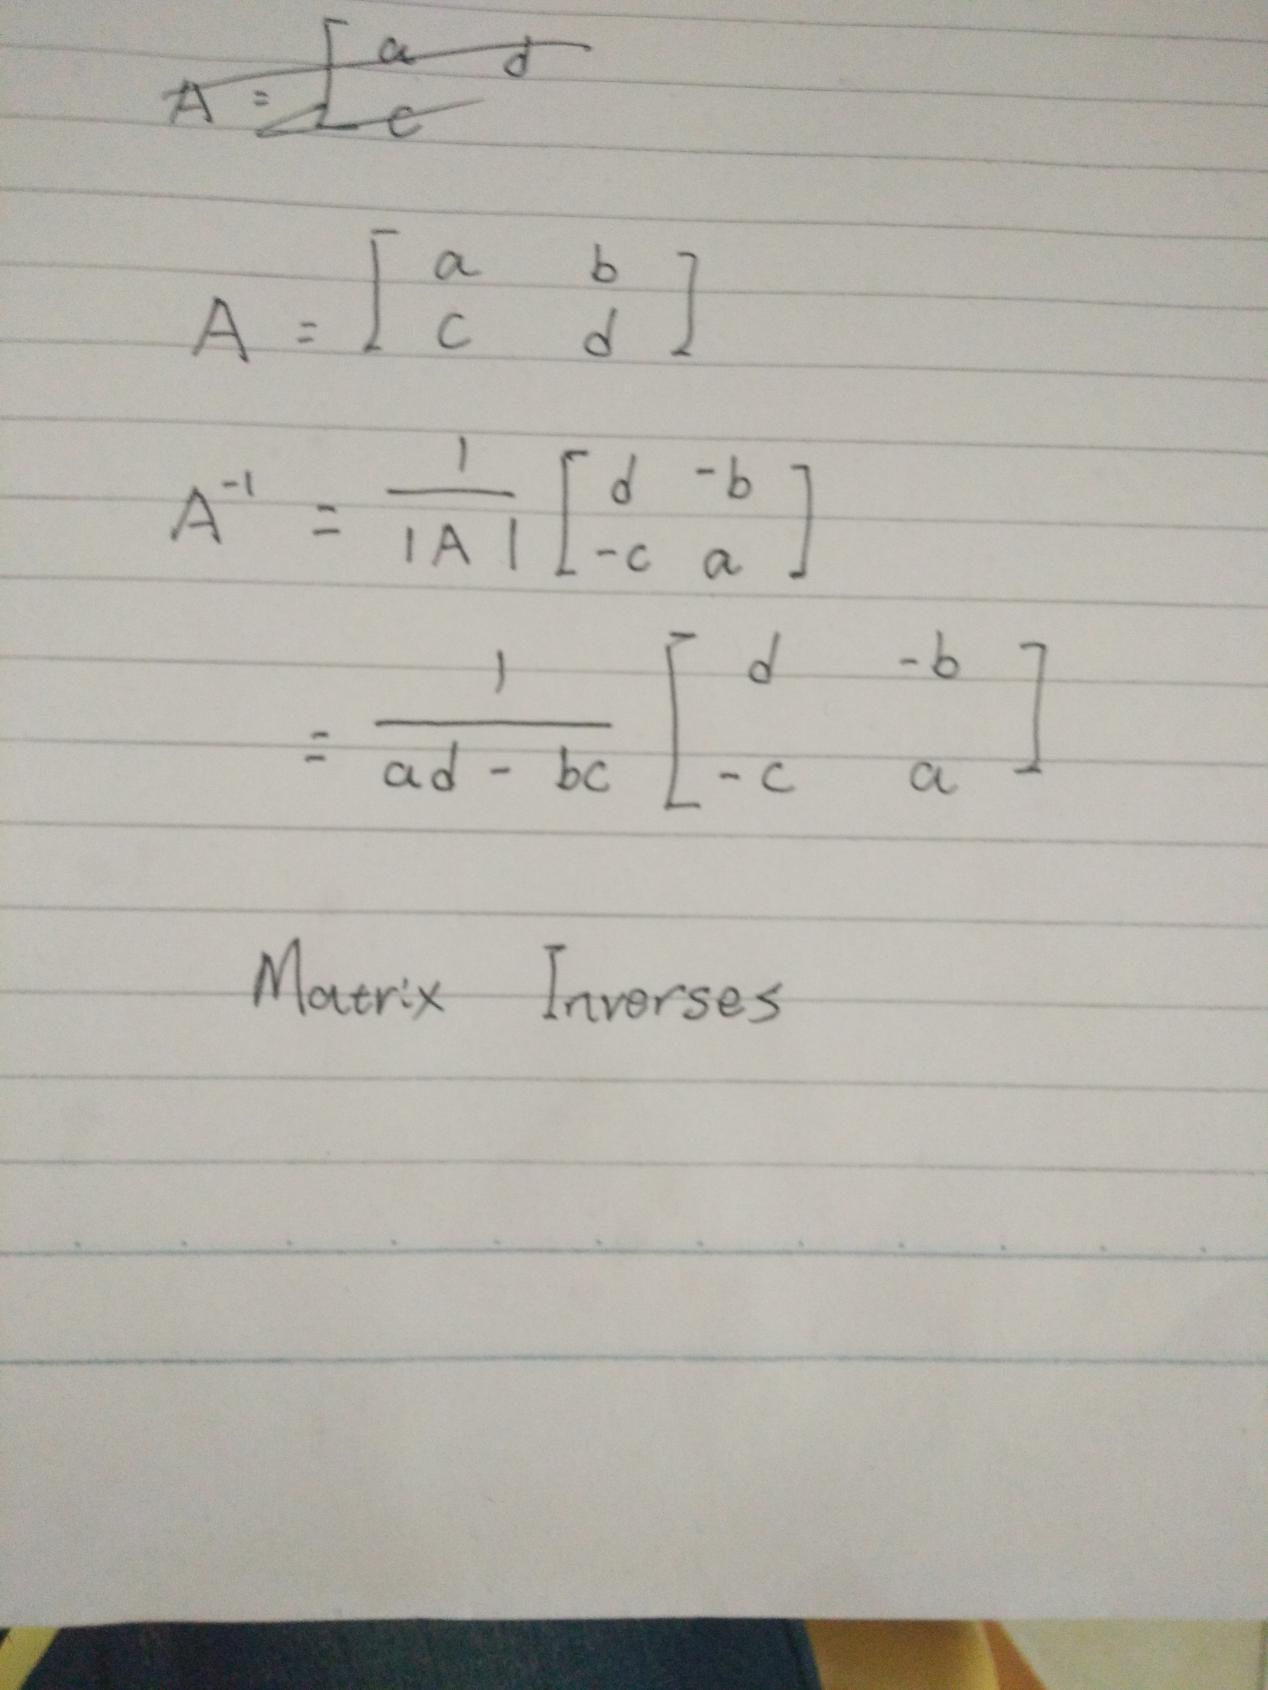 A = [ a d
c
A = [ a b
c d ]
A⁻¹ = 1/|A| [ d -b
-c a ]
= 1/(ad - bc) [ d -b
-c a ]
Matrix Inverses